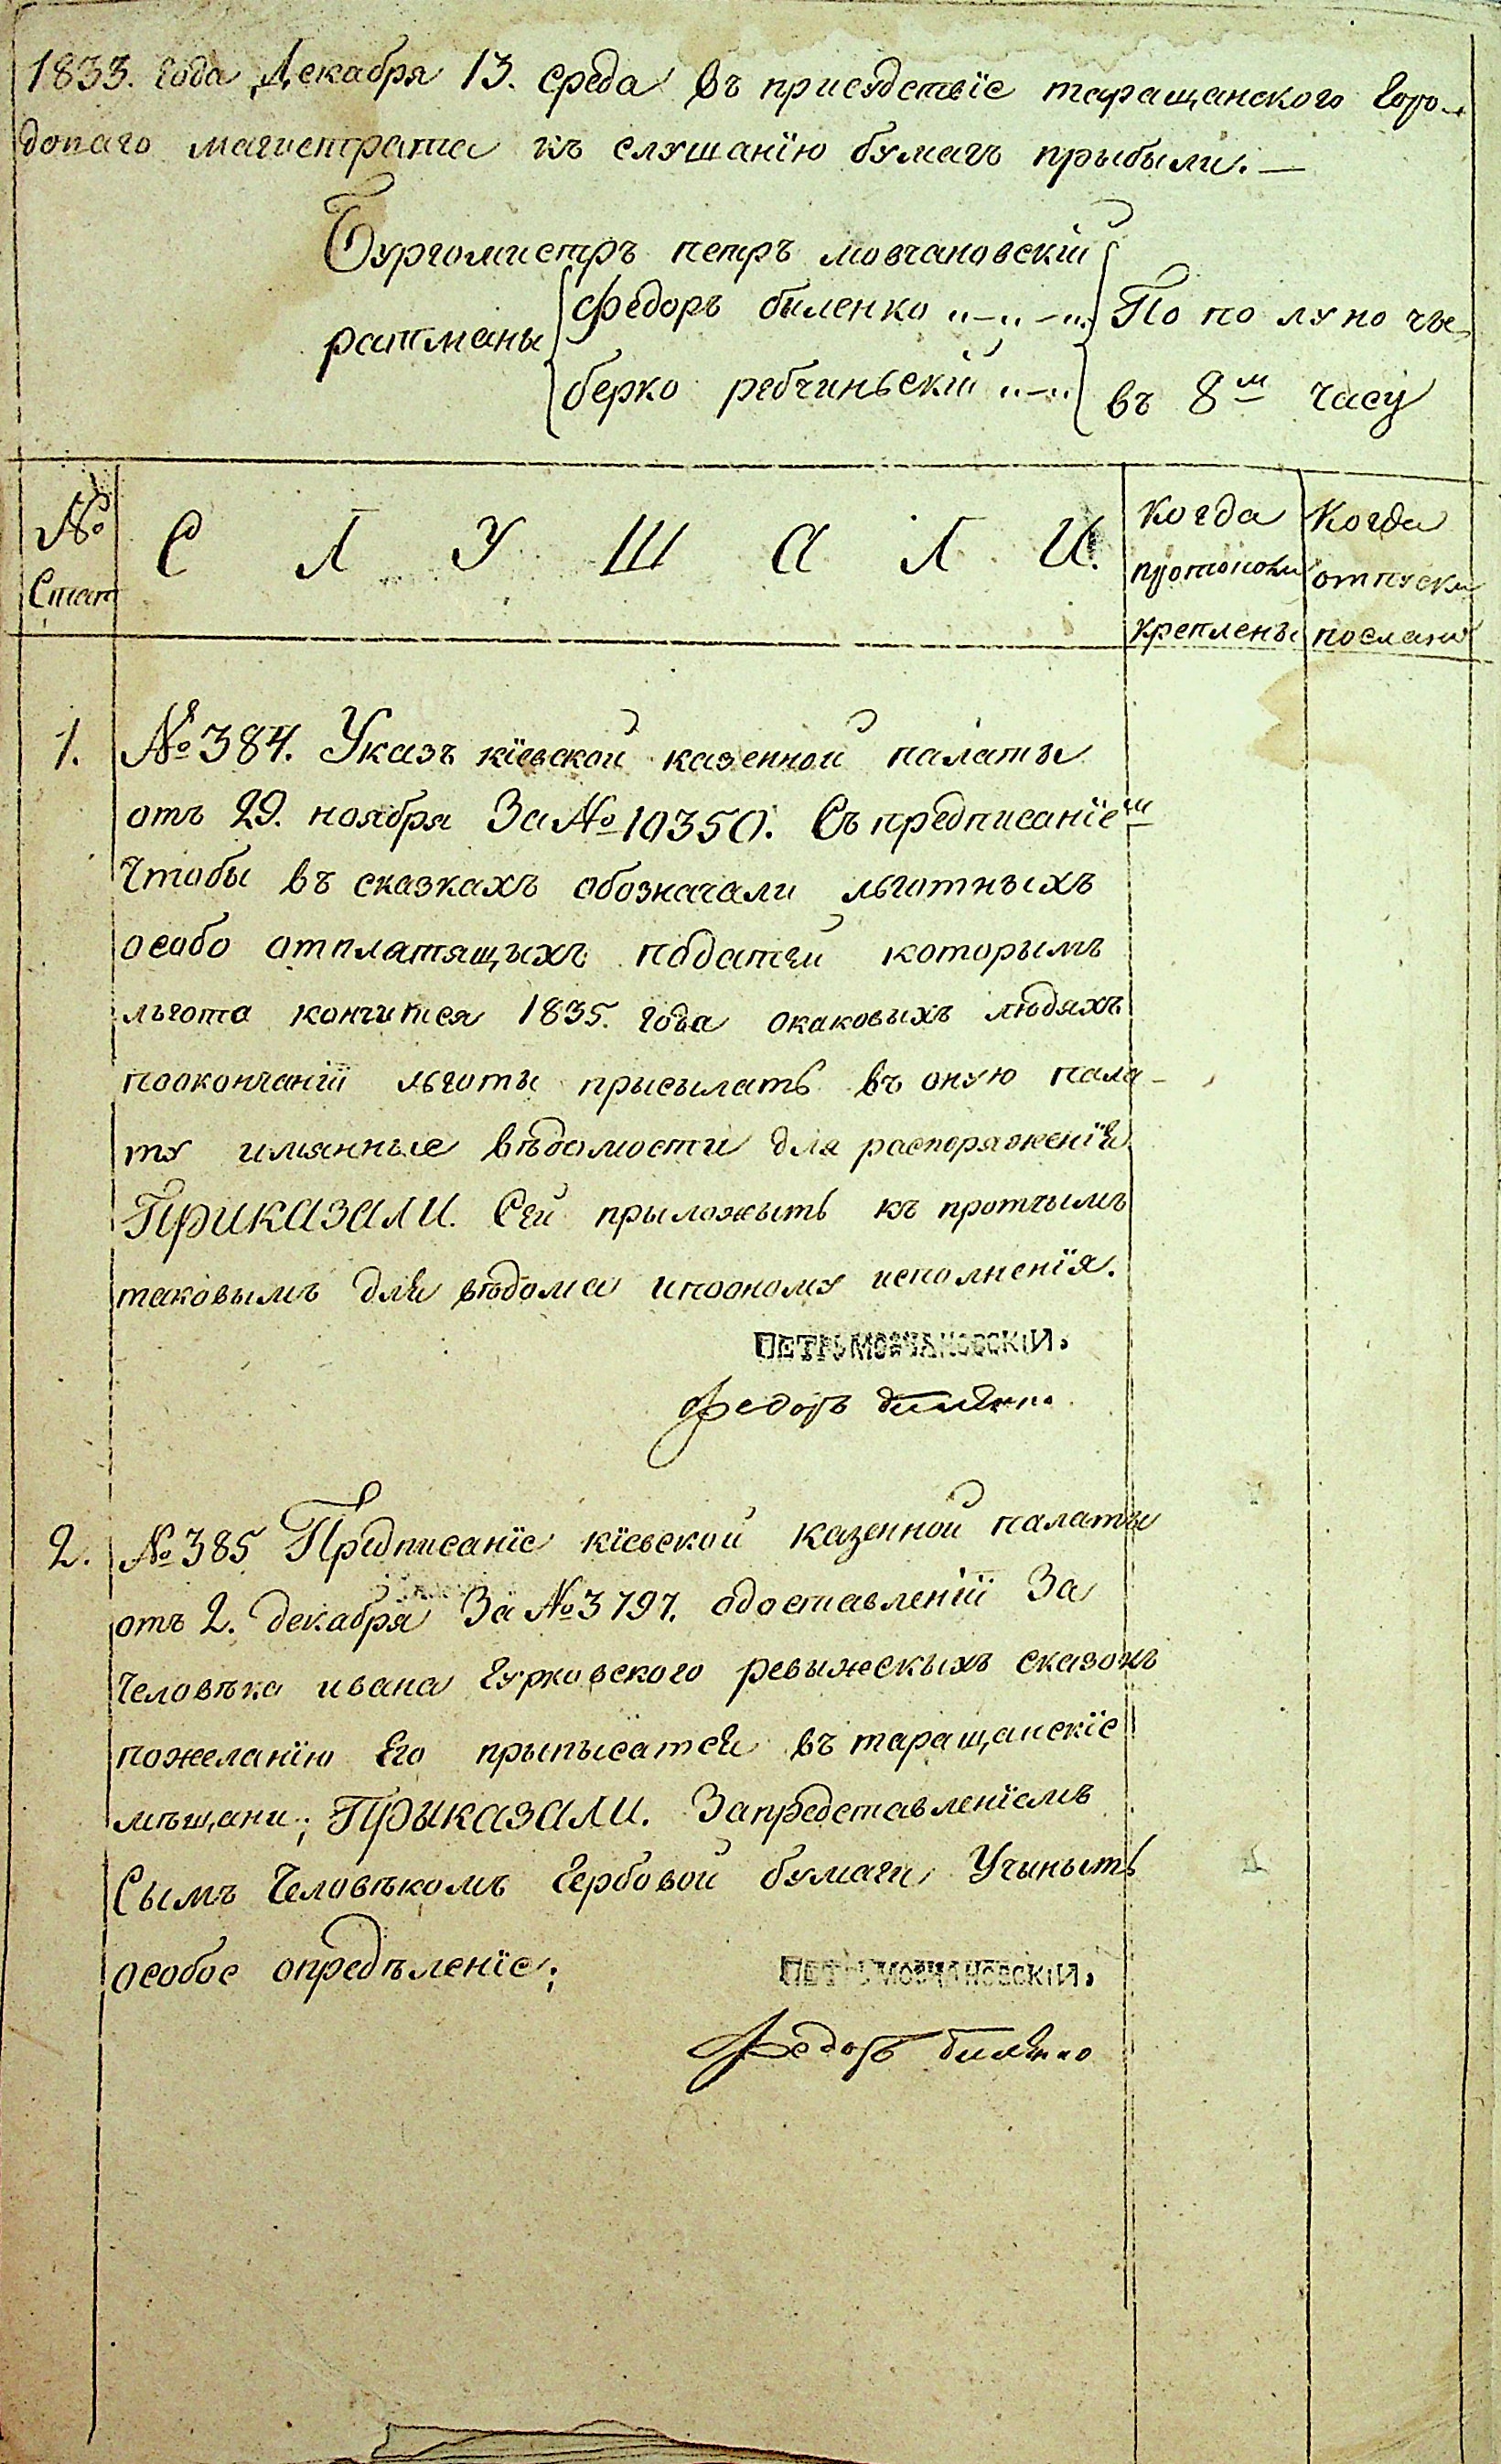 1833. года Декабря 13. среда въ присудствїе таращанского горо-
доваго магистрата къ слушанїю бумагъ прыбыли. —
Бургомистръ петръ мовчановскїй
ратманы
федоръ биленко
берко ребчиньскїй
По полуночы
въ 8м часу
№ Стат
С Л У Ш А Л И.
Когда протоколы креплены
Когда отпуски посланы
1. №384. Указъ кїевской казенной палаты
отъ 29. ноября За №10350. Съ предписанїем
Чтобы въ сказкахъ обозначали льготныхъ
особо отплатящыхъ податей которымъ
льгота кончится 1835. года окаковыхъ людяхъ
поокончанїй льготы присылать въ оную пала-
ту имянные вѣдомости для распоряженїя.
Приказали. Сей прыложыть къ протчымъ
таковымъ для вѣдома ипооному исполненїя.
ПЕТРЪ МОВЧАНОВСКІЙ.
Федоръ биленко
2. №385 Предписанїе кїевской казенной палаты
отъ 2. декабря За №3797. одоставленїй За
Человѣка ивана Гурковского ревыжскыхъ сказокъ
пожеланїю Его прыпысатся въ таращанскїе
мѣщани; Прыказали. Запредставленїемъ
Сымъ Человѣкомъ Гербовой бумаги, Учыныть
особое опредѣленїе;
ПЕТРЪ МОВЧАНОВСКІЙ.
Федоръ биленко